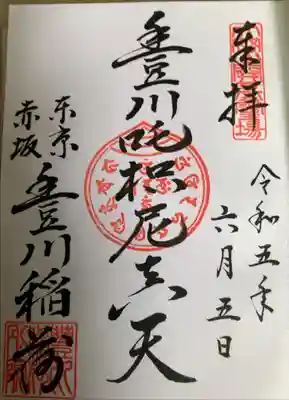 来拝
令和五年
六月五日
豊川吒枳尼真天
東京
赤坂
豊川稲荷